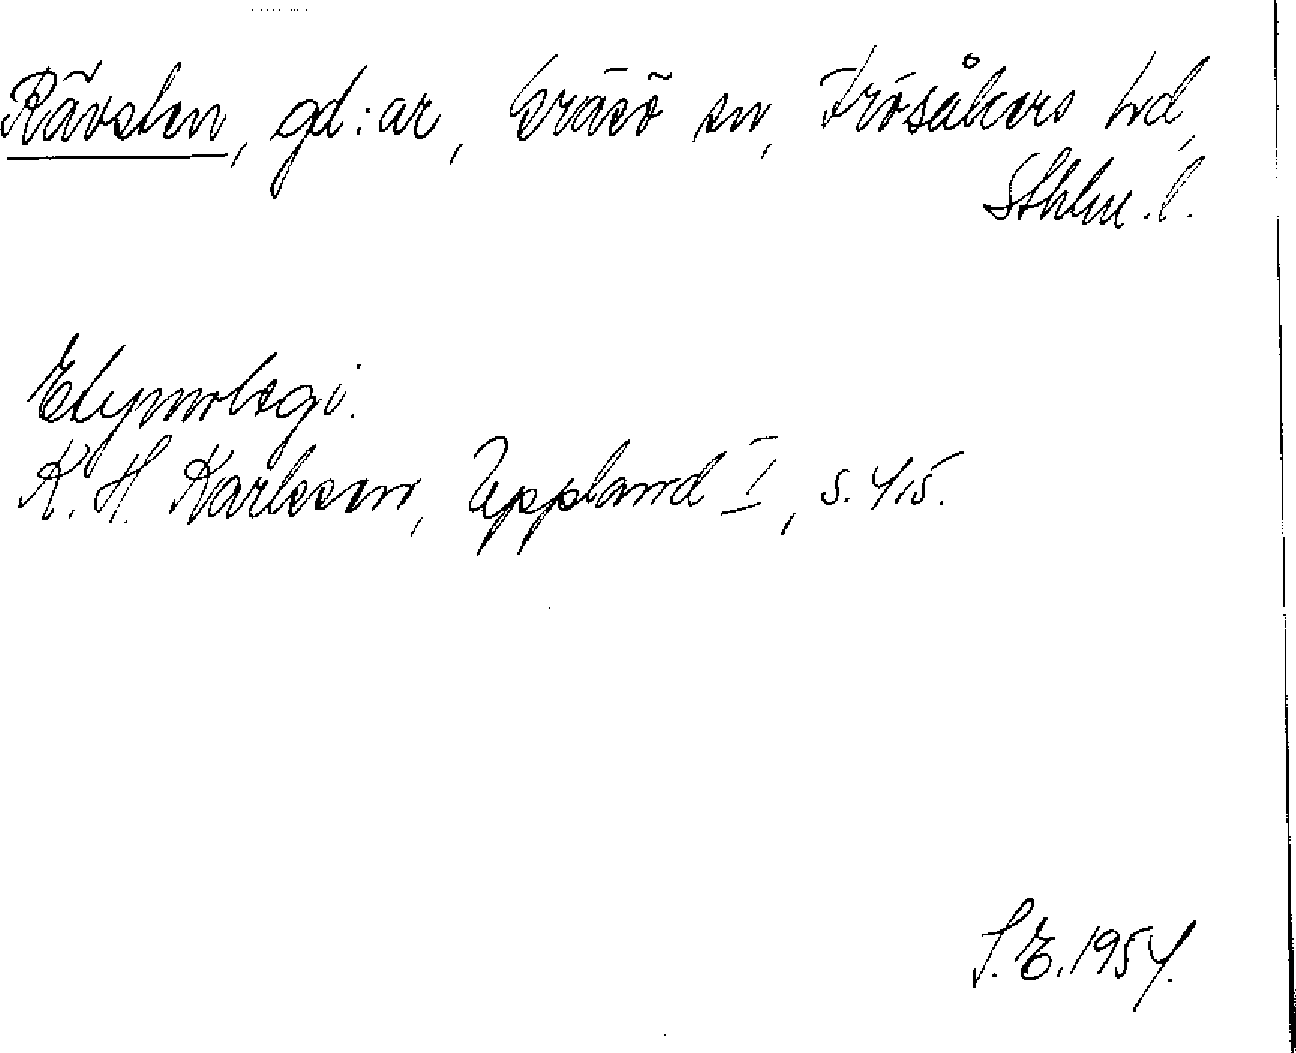 Rävsten, gd:ar, Gräsö sn, Frösåkers hd,
Sthlm. l.
Etymologi.
K. H. Karlsson, Uppland I, s. 415.
S. E. 1954.